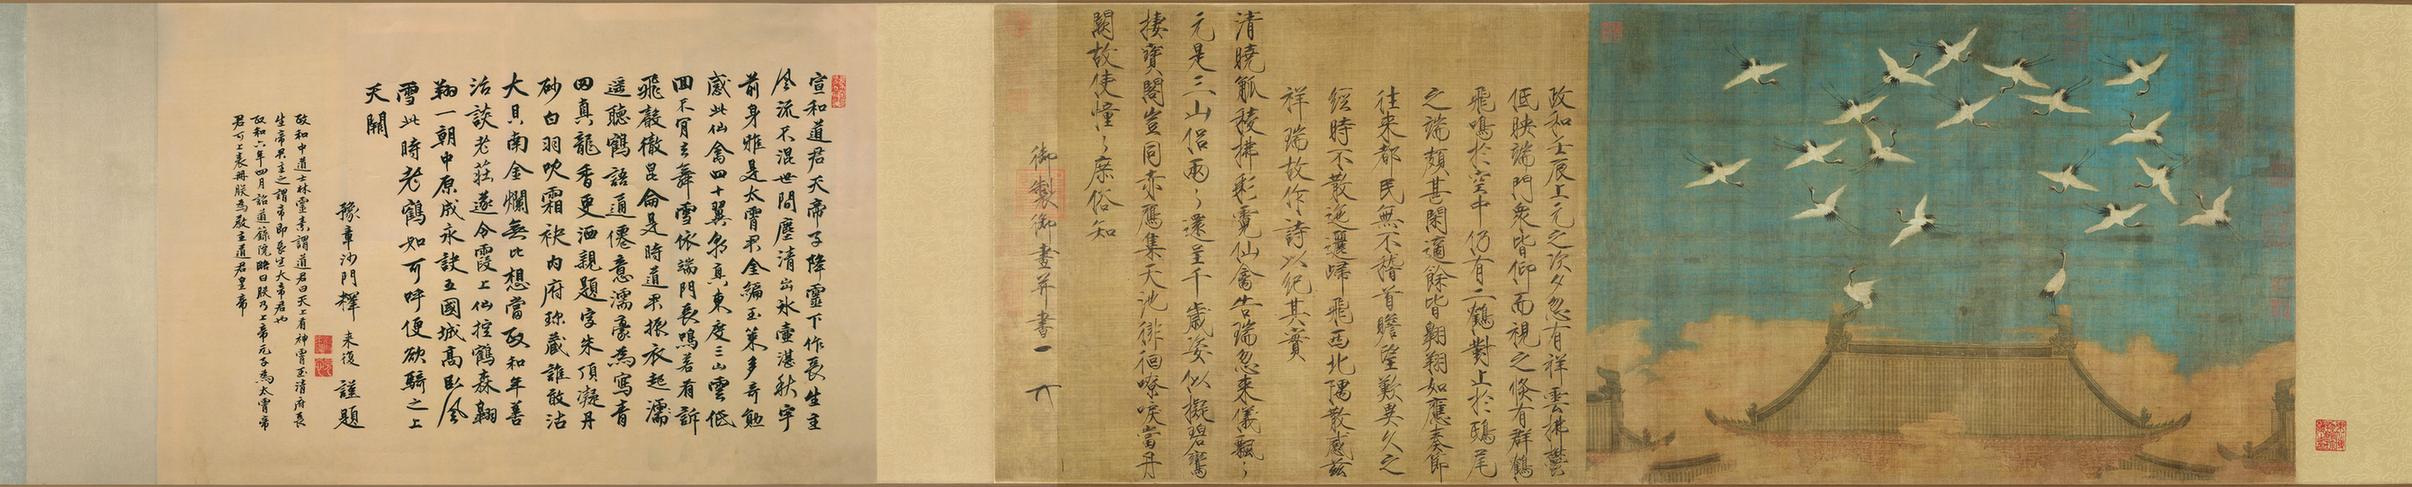 政和壬辰上元之次夕忽有祥雲拂鬱
低映端門衆皆仰而視之倏有群鶴
飛鳴於空中仍有二鶴對止於鴟尾
之端頗甚閑適餘皆翱翔如應奏節
往來都民無不稽首瞻望歎異久之
經時不散迤邐歸飛西北隅散感茲
祥瑞故作詩以紀其實
清曉觚稜拂彩霓仙禽告瑞忽來儀飄〻
元是三山侶兩〻還呈千歲姿似擬碧鸞
棲寶閣豈同赤鴈集天池徘徊嘹唳當丹
闕故使憧〻庶俗知
御製御畫并書
宣和道君天帝子降靈下作長生主
風流不混世間塵清出氷壺湛秋宇
前身雅是太霄君金編玉策多奇
感此仙禽四十翼朝真東度三山雲低
回不肯去舞雪依端門長鳴若有訴
飛聲徹昆侖是時道君振衣起濡
遥聽鶴語通僊意濡豪為寫青
田真龍香更洒親題字朱頂凝丹
砂白羽吹霜袂内府珍藏誰敢沽
大貝南金爛無比想當政和年善
治談老莊遂令霞上仙控鶴森翱
翔一朝中原成永訣五國城高臥風
雪此時老鶴如可呼便欲騎之上
天闕
豫章沙門釋 来復 謹題
政和中道士林靈素謂道君曰天上有神霄玉清府長
生帝君主之謂帝即長生大帝君也
政和六年四月詔道籙院略曰朕乃上帝元子為太霄帝
君可上表冊朕為教主道君皇帝